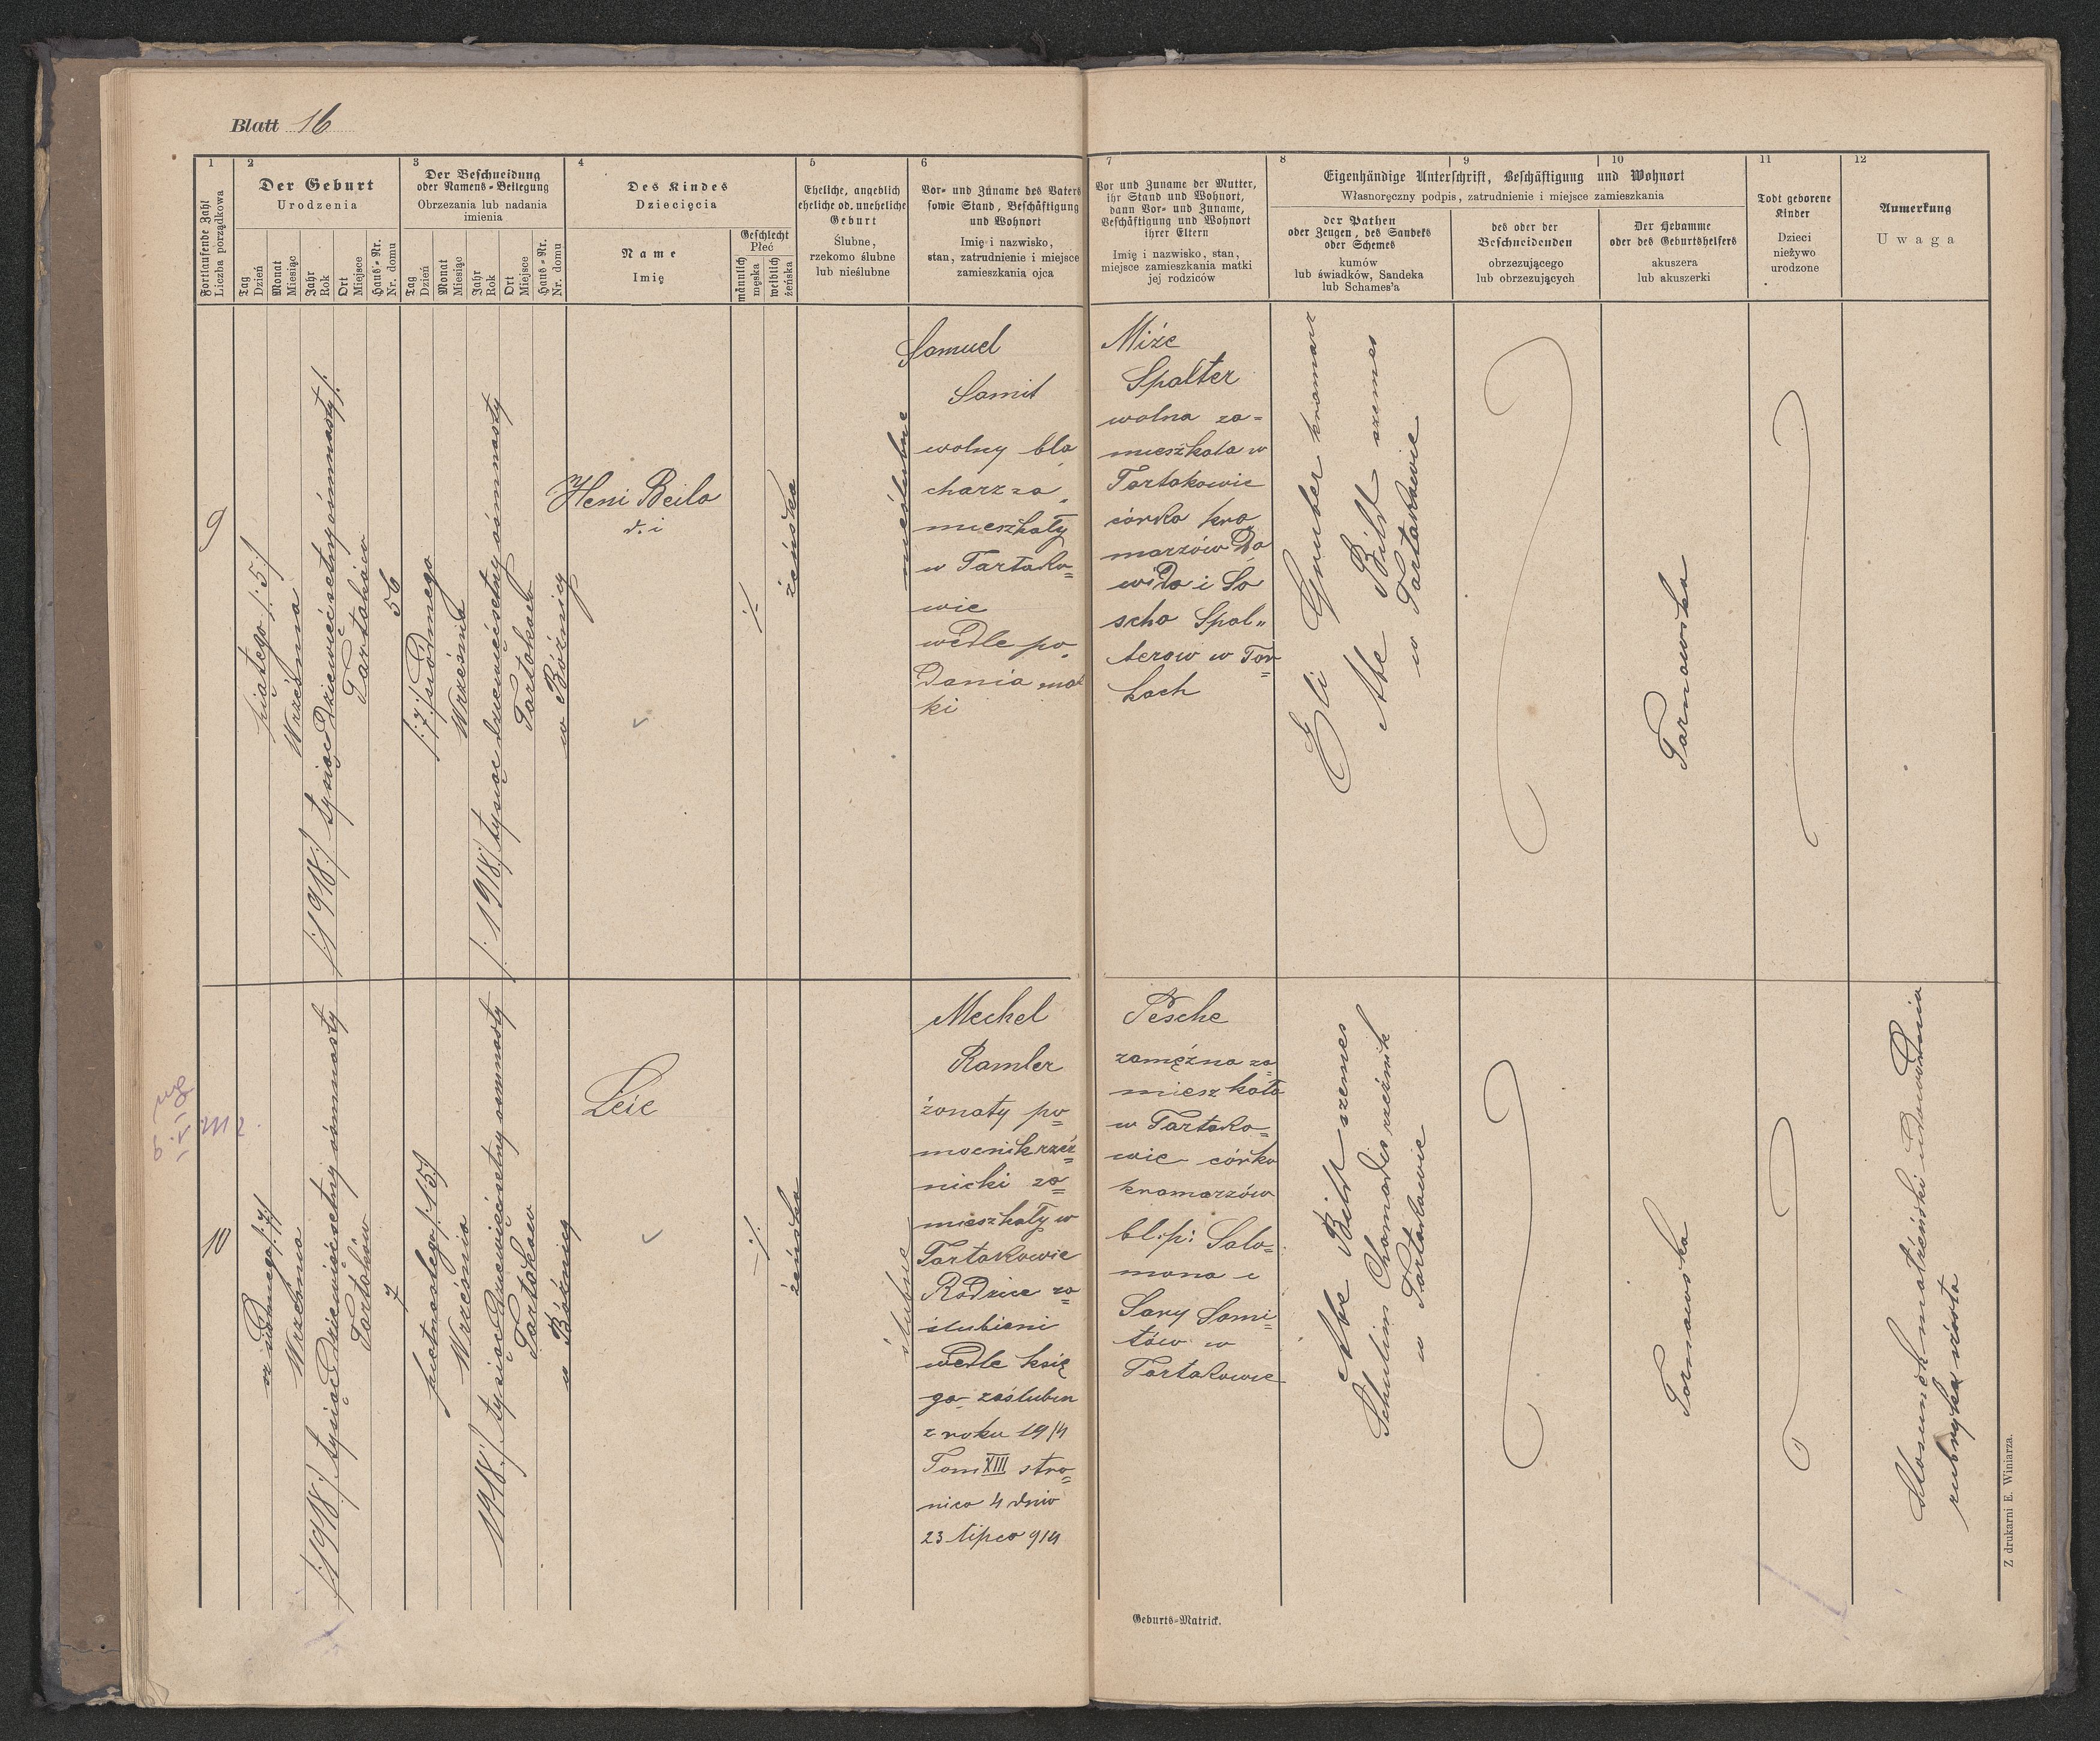 Blatt 16
1 2 3 4 5 6 7 8 9 10 11 12
Fortlaufende Zahl
Liczba porządkowa
Der Geburt
Urodzenia
Tag
Dzień
Monat
Miesiąc
Jahr
Rok
Ort
Miejsce
Haus-Nr.
Nr. domu
Der Beschneidung
oder Namens-Beilegung
Obrzezania lub nadania
imienia
Tag
Dzień
Monat
Miesiąc
Jahr
Rok
Ort
Miejsce
Haus-Nr.
Nr. domu
Des Kindes
Dziecięcia
Name
Imię
Geschlecht
Płeć
männlich
męska
weiblich
żeńska
Eheliche, angeblich
eheliche od. uneheliche
Geburt
Ślubne,
rzekomo ślubne
lub nieślubne
Vor- und Zuname des Vaters
sowie Stand, Beschäftigung
und Wohnort
Imię i nazwisko,
stan, zatrudnienie i miejsce
zamieszkania ojca
Vor und Zuname der Mutter,
ihr Stand und Wohnort,
dann Vor- und Zuname,
Beschäftigung und Wohnort
ihrer Eltern
Imię i nazwisko, stan,
miejsce zamieszkania matki
jej rodziców
Eigenhändige Unterschrift, Beschäftigung und Wohnort
Własnoręczny podpis, zatrudnienie i miejsce zamieszkania
der Pathen
oder Zeugen, des Sandeks
oder Schemes
kumów
lub świadków, Sandeka
lub Schames'a
des oder der
Beschneidenden
obrzezującego
lub obrzezujących
Der Hebamme
oder des Geburtshelfers
akuszera
lub akuszerki
Todt geborene
Kinder
Dzieci
nieżywo
urodzone
Anmerkung
Uwaga
9
piątego /:5:/
Września
/:1918:/ tysiąc dziewięćsetny ośmnasty/:
Tartaków
56
/:7:/ siódmego
Września
/:1918:/ tysiąc dziewięćsetny ośmnasty
Tartaków
w Bóźnicy
Heni Beila
d. i
żeńska
nieślubne
Samuel
Samit
wolny bla
charz za
mieszkały
w Tartako=
wie
wedle po
dania mat
ki
Miże
Spalter
wolna za=
mieszkała w
Tartakowie
córka kra
marzów Da
wida i Sa
scha Spal"
terow w Tar
kach
Eli Gruber kramarz
Abe Bild szemes
w Tartakowie
Tarnowska
10
siódmego /:7:/
Września
/:1918:/ tysiąc dziewięćsetny ośmnasty
Tartaków
7
piętnastego /:15:/
Września
1918:/ tysiąc dziewięćsetny osmnasty
Tartaków
w Bóźnicy
Leie
żeńska
ślubne
Mechel
Ramler
żonaty po=
mocnik rzeź=
nicki za=
mieszkały w
Tartakowie
Rodzice za=
ślubieni
wedle księ
ga zaślubin
z roku 1914
Tom XIII stro=
nica 4 dnia
23 lipca 914
Pesche
zamężna za=
mieszkała
w Tartako=
wie córka
kramarzów
bł:p: Salo=
mona i
Sary Sami=
tów w
Tartakowie
Abe Bild szemes
Schulim Chamajdes rzeźnik
w Tartakowie
Tarnowska
Stosunek małżeński udowadnia
rubryka szósta
Geburts-Matrick.
Z drukarni E. Winiarza.